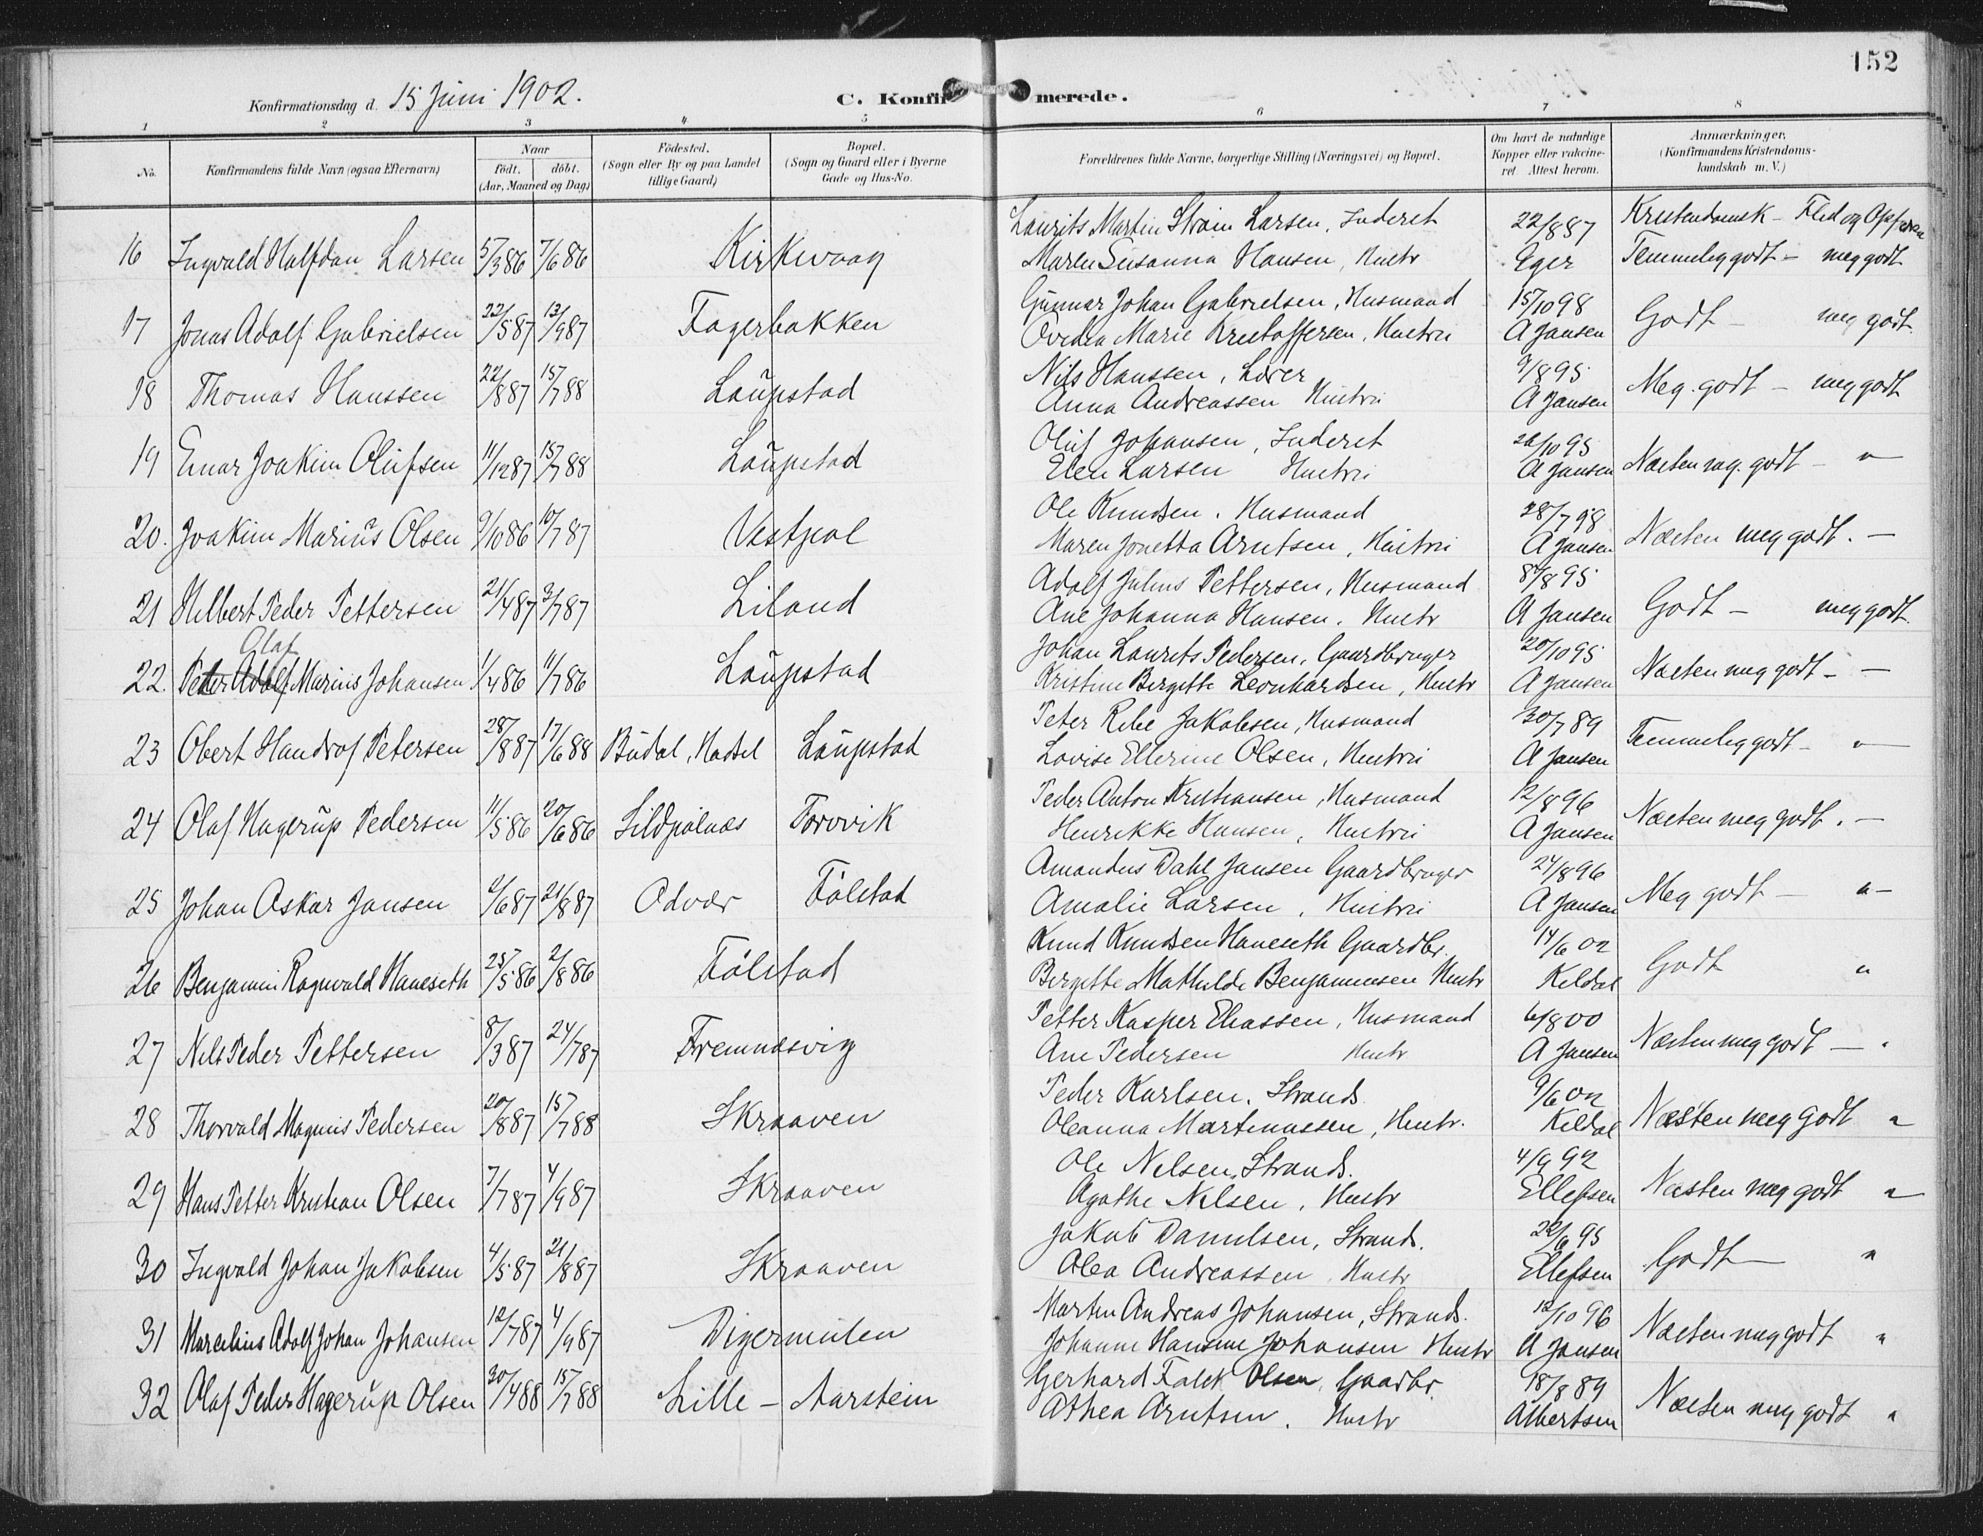 152
Konfirmationsdag d. 15 Juni 1902. C. Konfirmerede.
1 2 3 4 5 6 7 8
No. Konfirmandens fulde Navn (ogsaa Efternavn) Naar født. døbt. (Aar, Maaned og Dag) Födested. (Sogn eller By og paa Landet tillige Gaard) Bopæl. (Sogn og Gaard eller i Byerne Gade og Hus-No. Forældrenes fulde Navne, borgerlige Stilling (Næringsvei) og Bopæl. Om havt de naturlige Kopper eller vakcineret Attest herom. Anmærkninger. (Konfirmandens Kristendomskundskab m. V.)
Laurits Martin Strøm Larsen, Inderst 22/8 87 Kristendomsk - Flid og Opførsel
16 Ingvald Halfdan Larsen 5/3 86 7/6 86 Kirkvaag Maren Susanna Hansen, Hustr Eger Temmelig godt - meg godt
Gunnar Johan Gabrielsen, Husmand 15/10 98
17 Jonas Adolf Gabrielsen 22/5 87 12/9 87 Fagerbakken Ovedia Marie Kristoffersen, Hustru A Jansen Godt - meg godt.
Nils Hanssen, Lærer 9/8 95
18 Thomas Hanssen 22/8 87 15/7 88 Laupstad Anna Andreassen Hustru A Jansen Meg. godt - meg godt
Oluf Johansen, Inderst 26/10 95
19 Einar Joakim Olufsen 11/12 87 15/7 88 Laupstad Elen Larsen Hustru A Jansen Næsten meg. godt - "
Ole Knudsen, Husmand 28/7 98
20. Joakim Marius Olsen 9/10 86 10/7 87 Vestpol Maren Jonetta Arntsen, Hustru A Jansen Næsten meg godt. -
Adolf Julius Pettersen, Husmand 8/8 95
21 Hilbert Peder Pettersen 21/4 87 3/7 87 Liland Ane Johanna Hansen, Hustr A Jansen Godt - meg godt.
Olaf Johan Laurits Pedersen, Gaardbruger 20/10 95
22. Peter Adolf Marius Johansen 1/4 86 11/7 86 Laupstad Kristine Bergitte Leonhardsen, Hustr A Jansen Næsten meg godt - -
Peter Ribe Jakobsen, Husmand 30/7 89
23 Obert Handrof Petersen 28/8 87 17/6 88 Budal, Hadsel Laupstad Lovise Ellerine Olsen, Hustru A Jansen Temmelig godt - "
Peder Anton Kristiansen, Husmand 12/8 96
24 Olaf Hagerup Pedersen 11/5 86 20/6 86 Sildpolnæs Torvvik Henrikke Hansen, Hustru A Jansen Næsten meg godt. -
Amandus Dahl Jansen Gaardbruger 24/8 96
25 Johan Oskar Jansen 2/6 87 21/8 87 Odvær Følstad Amalie Larsen, Hustru A Jansen Meg godt - "
Knud Knudsen Haneseth Gaardbr. 14/6 02
26 Benjamin Ragnvald Haneseth 25/5 86 2/8 86 Følstad Bergitte Mathilde Benjaminsen Hustr Keldal Godt "
Petter Kasper Eliassen, Husmand 6/8 00
27 Nils Peder Pettersen 8/3 87 24/7 87 Fremnesvig Ane Pedersen Hustr A Jansen Næsten meg godt - "
Peder Karlsen, Strands. 9/6 02
28 Thorvald Magnus Pedersen 20/8 87 15/7 88 Skraaven Oleanna Martinussen, Hustr. Keldal Næsten meg godt "
Ole Nilsen, Strands. 4/9 92
29 Hans Petter Kristian Olsen 7/7 87 4/9 87 Skraaven Agathe Nilsen, Hustr Ellefsen Næsten meg godt "
Jakob Danielsen, Strands. 22/6 95
30 Ingvald Johan Jakobsen 4/5 87 21/8 87 Skraaven Olea Andreassen, Hustr Ellefsen Godt - "
Martin Andreas Johansen, Strands. 12/10 96
31 Marcelius Adolf Johan Johansen 12/7 87 4/9 87 Digermulen Johanne Hansine Johansen Hustr A Jansen Næsten meg godt "
Gerhard Falck Olsen, Gaardbr. 18/8 89
32 Olaf Peder Hagerup Olsen 30/4 88 15/7 88 Lille - Aarstein Athea Arntsen, Hustr Albertsen Næsten meg godt "